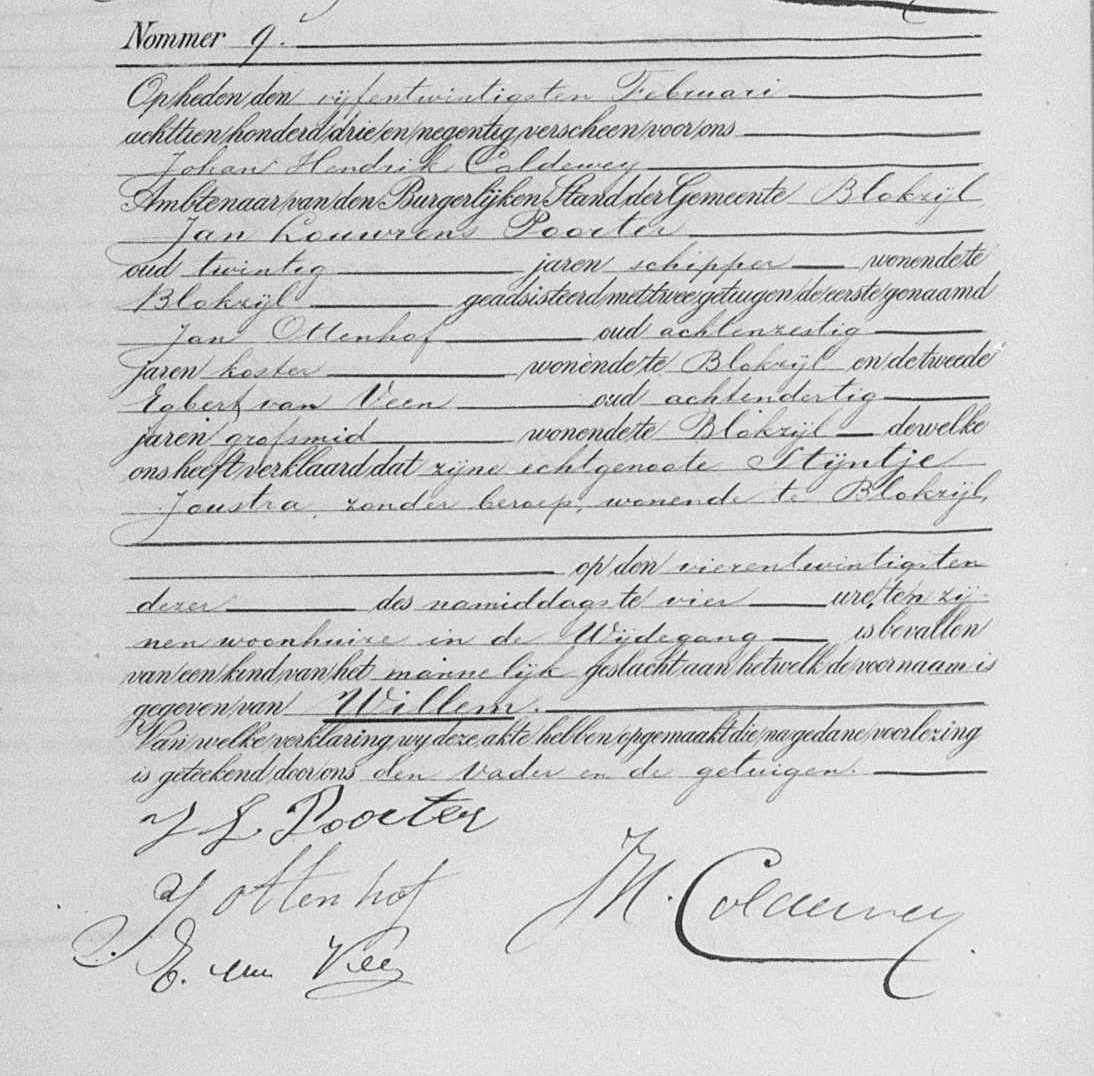 Nommer 9.
Op heden den vijfentwintigsten Februari
achttien honderd drie en negentig, verscheen voor ons
Johan Hendrik Coldewey
Ambtenaar van den Burgerlijken Stand der Gemeente Blokzijl
Jan Louwrens Poorter
oud twintig jaren schipper wonende te
Blokzijl geadsisteerd met twee getuigen de eerste genaamd
Jan Ottenhof oud achtenzestig
jaren koster wonende te Blokzijl en de tweede
Egbert van Veen oud achtendertig
jaren grofsmid wonende te Blokzijl dewelke
ons heeft verklaard dat zijne echtgenoote Stijntje
Joustra, zonder beroep, wonende te Blokzijl,
op den vierentwintigsten
dezer des namiddags te vier ure, ten zij-
nen woonhuize in de Wijdegang is bevallen
van een kind van het mannelijk geslacht aan hetwelk de voornaam is
gegeven van Willem.
Van welke verklaring wy deze akte hebben opgemaakt die na gedane voorlezing
is geteekend door ons den vader en de getuigen.
J L Poorter
J Ottenhof
JH. Coldewey
E. van Veen